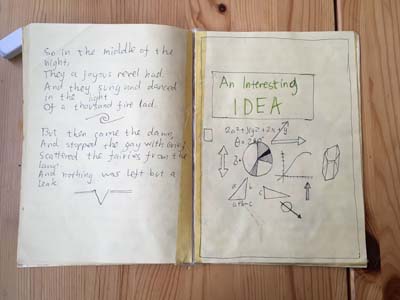 So in the middle of the
night,
They a joyous revel had.
And they sung and danced
in the light
Of a thousand fire lad.
But then came the dawn,
And stopped the gay with
Scattered the fairies from the
And nothing was left but a
leak.
An Interesting
IDEA
a
b
c
a+b=c
c